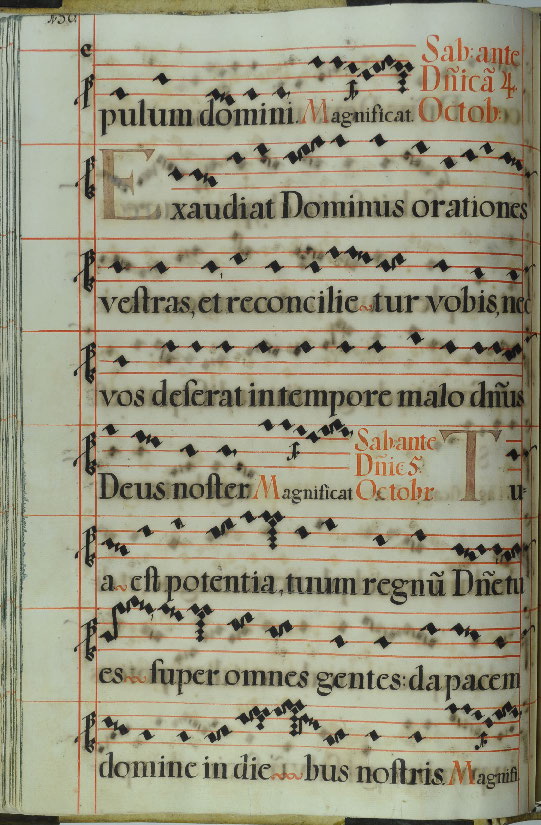 Sab: ante
Dñicã 4.
pulum domini. Magnificat. Octob:
Exaudiat Dominus orationes
vestras, et reconcilie tur vobis, nec
vos deserat in tempore malo dñus
Sab: ante
Dñic 5.
Deus noster Magnificat Octobr Tu=
a est potentia, tuum regnũ Dñe tu
es super omnes gentes: da pacem
domine in die bus nostris. Magnifi.